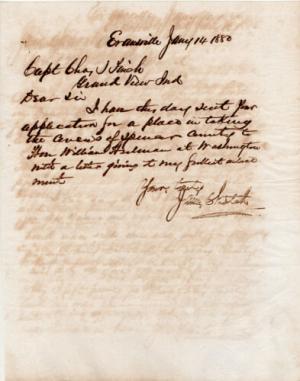 Evansville Jany 14 1880
Capt Chas J Finch
Grand View Ind
Dear Sir
I have this day sent your
application for a place in taking
the census of Spencer County to
Hon William Heilman at Washington
with a letter giving it my fullest indorse
ment
Yours Truly